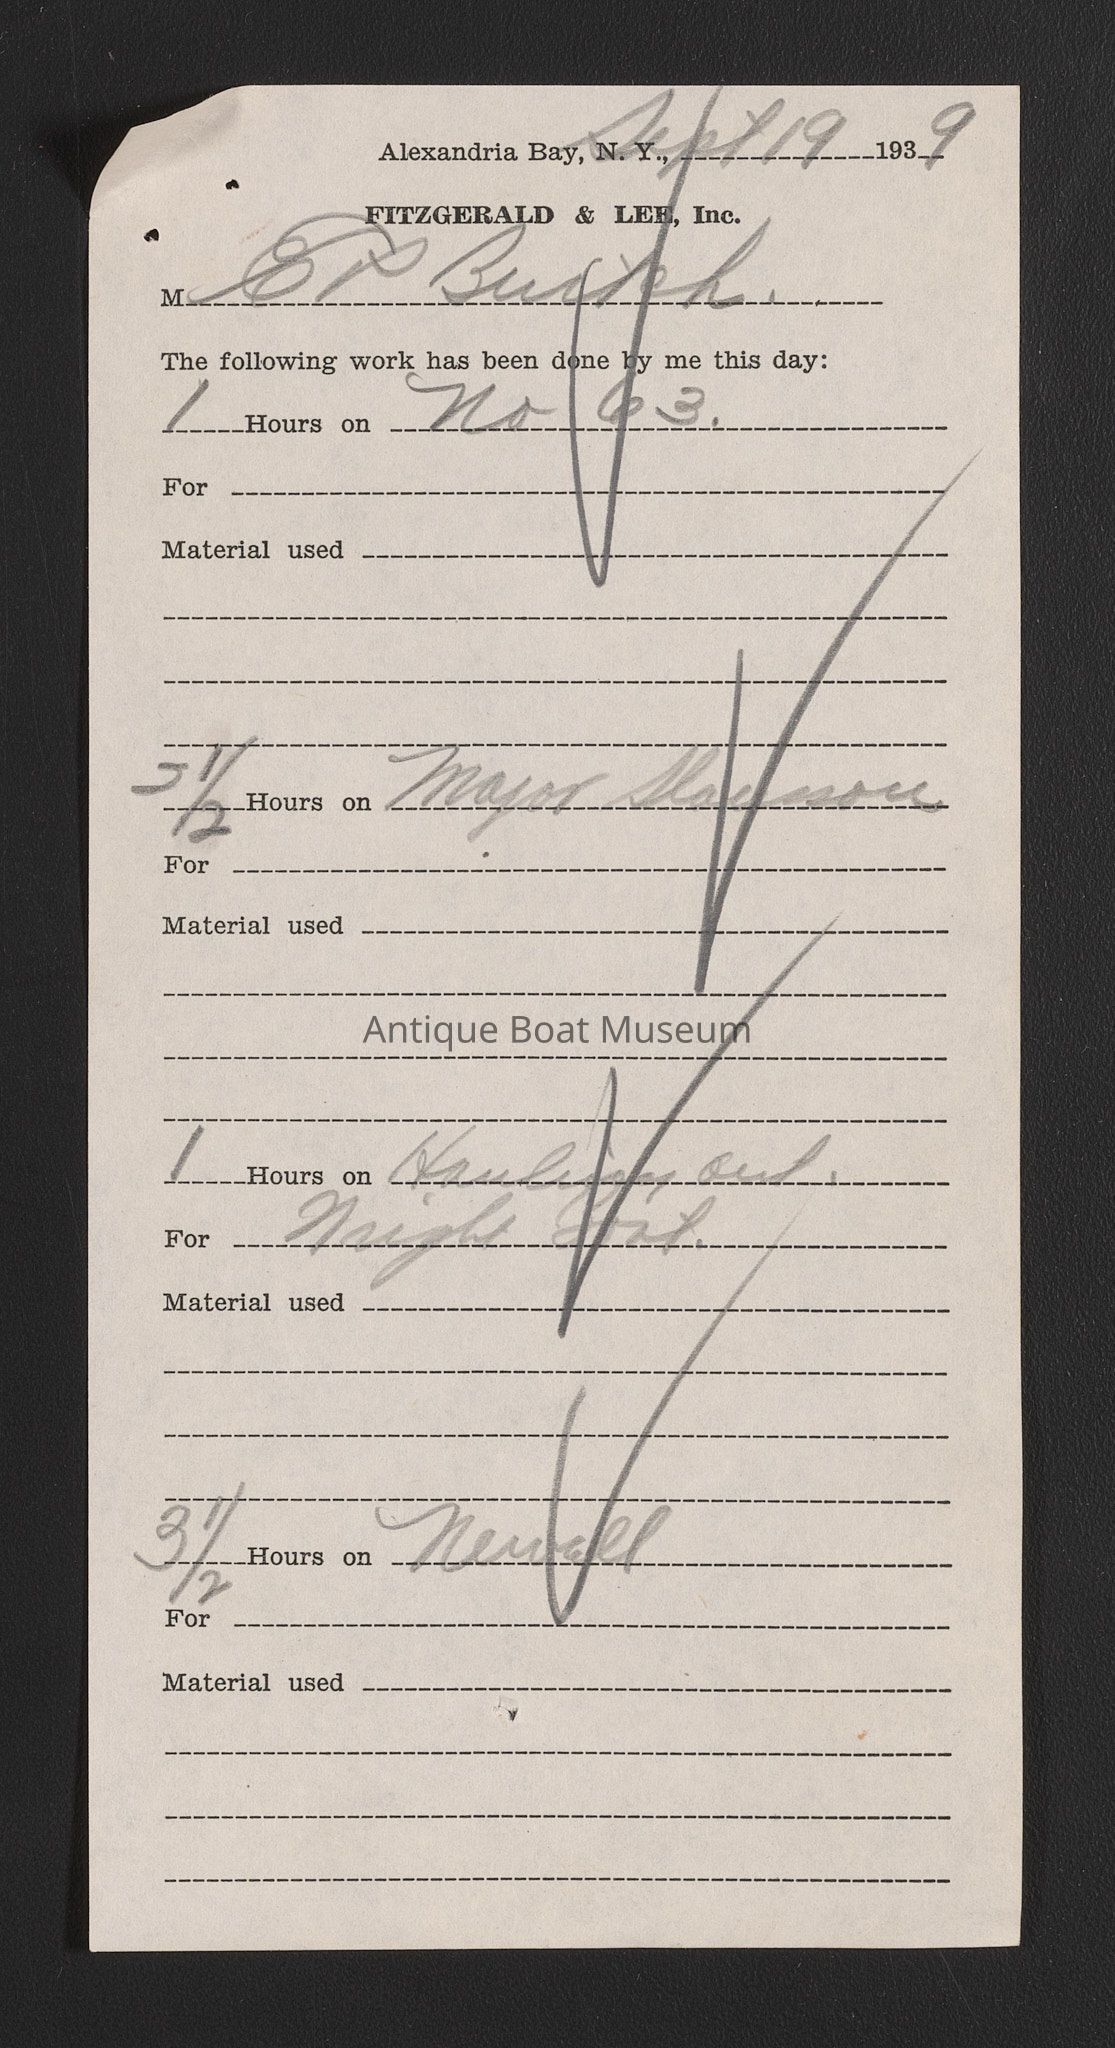 Alexandria Bay, N. Y., Sept 19 1939
FITZGERALD & LEE, Inc.
M E P Burtch.
The following work has been done by me this day:
1 Hours on No 63.
For
Material used
1/2 Hours on Major
For
Material used
Antique Boat Museum
1 Hours on Hauling out.
For Wright boat.
Material used
3 1/2 Hours on Newell
For
Material used